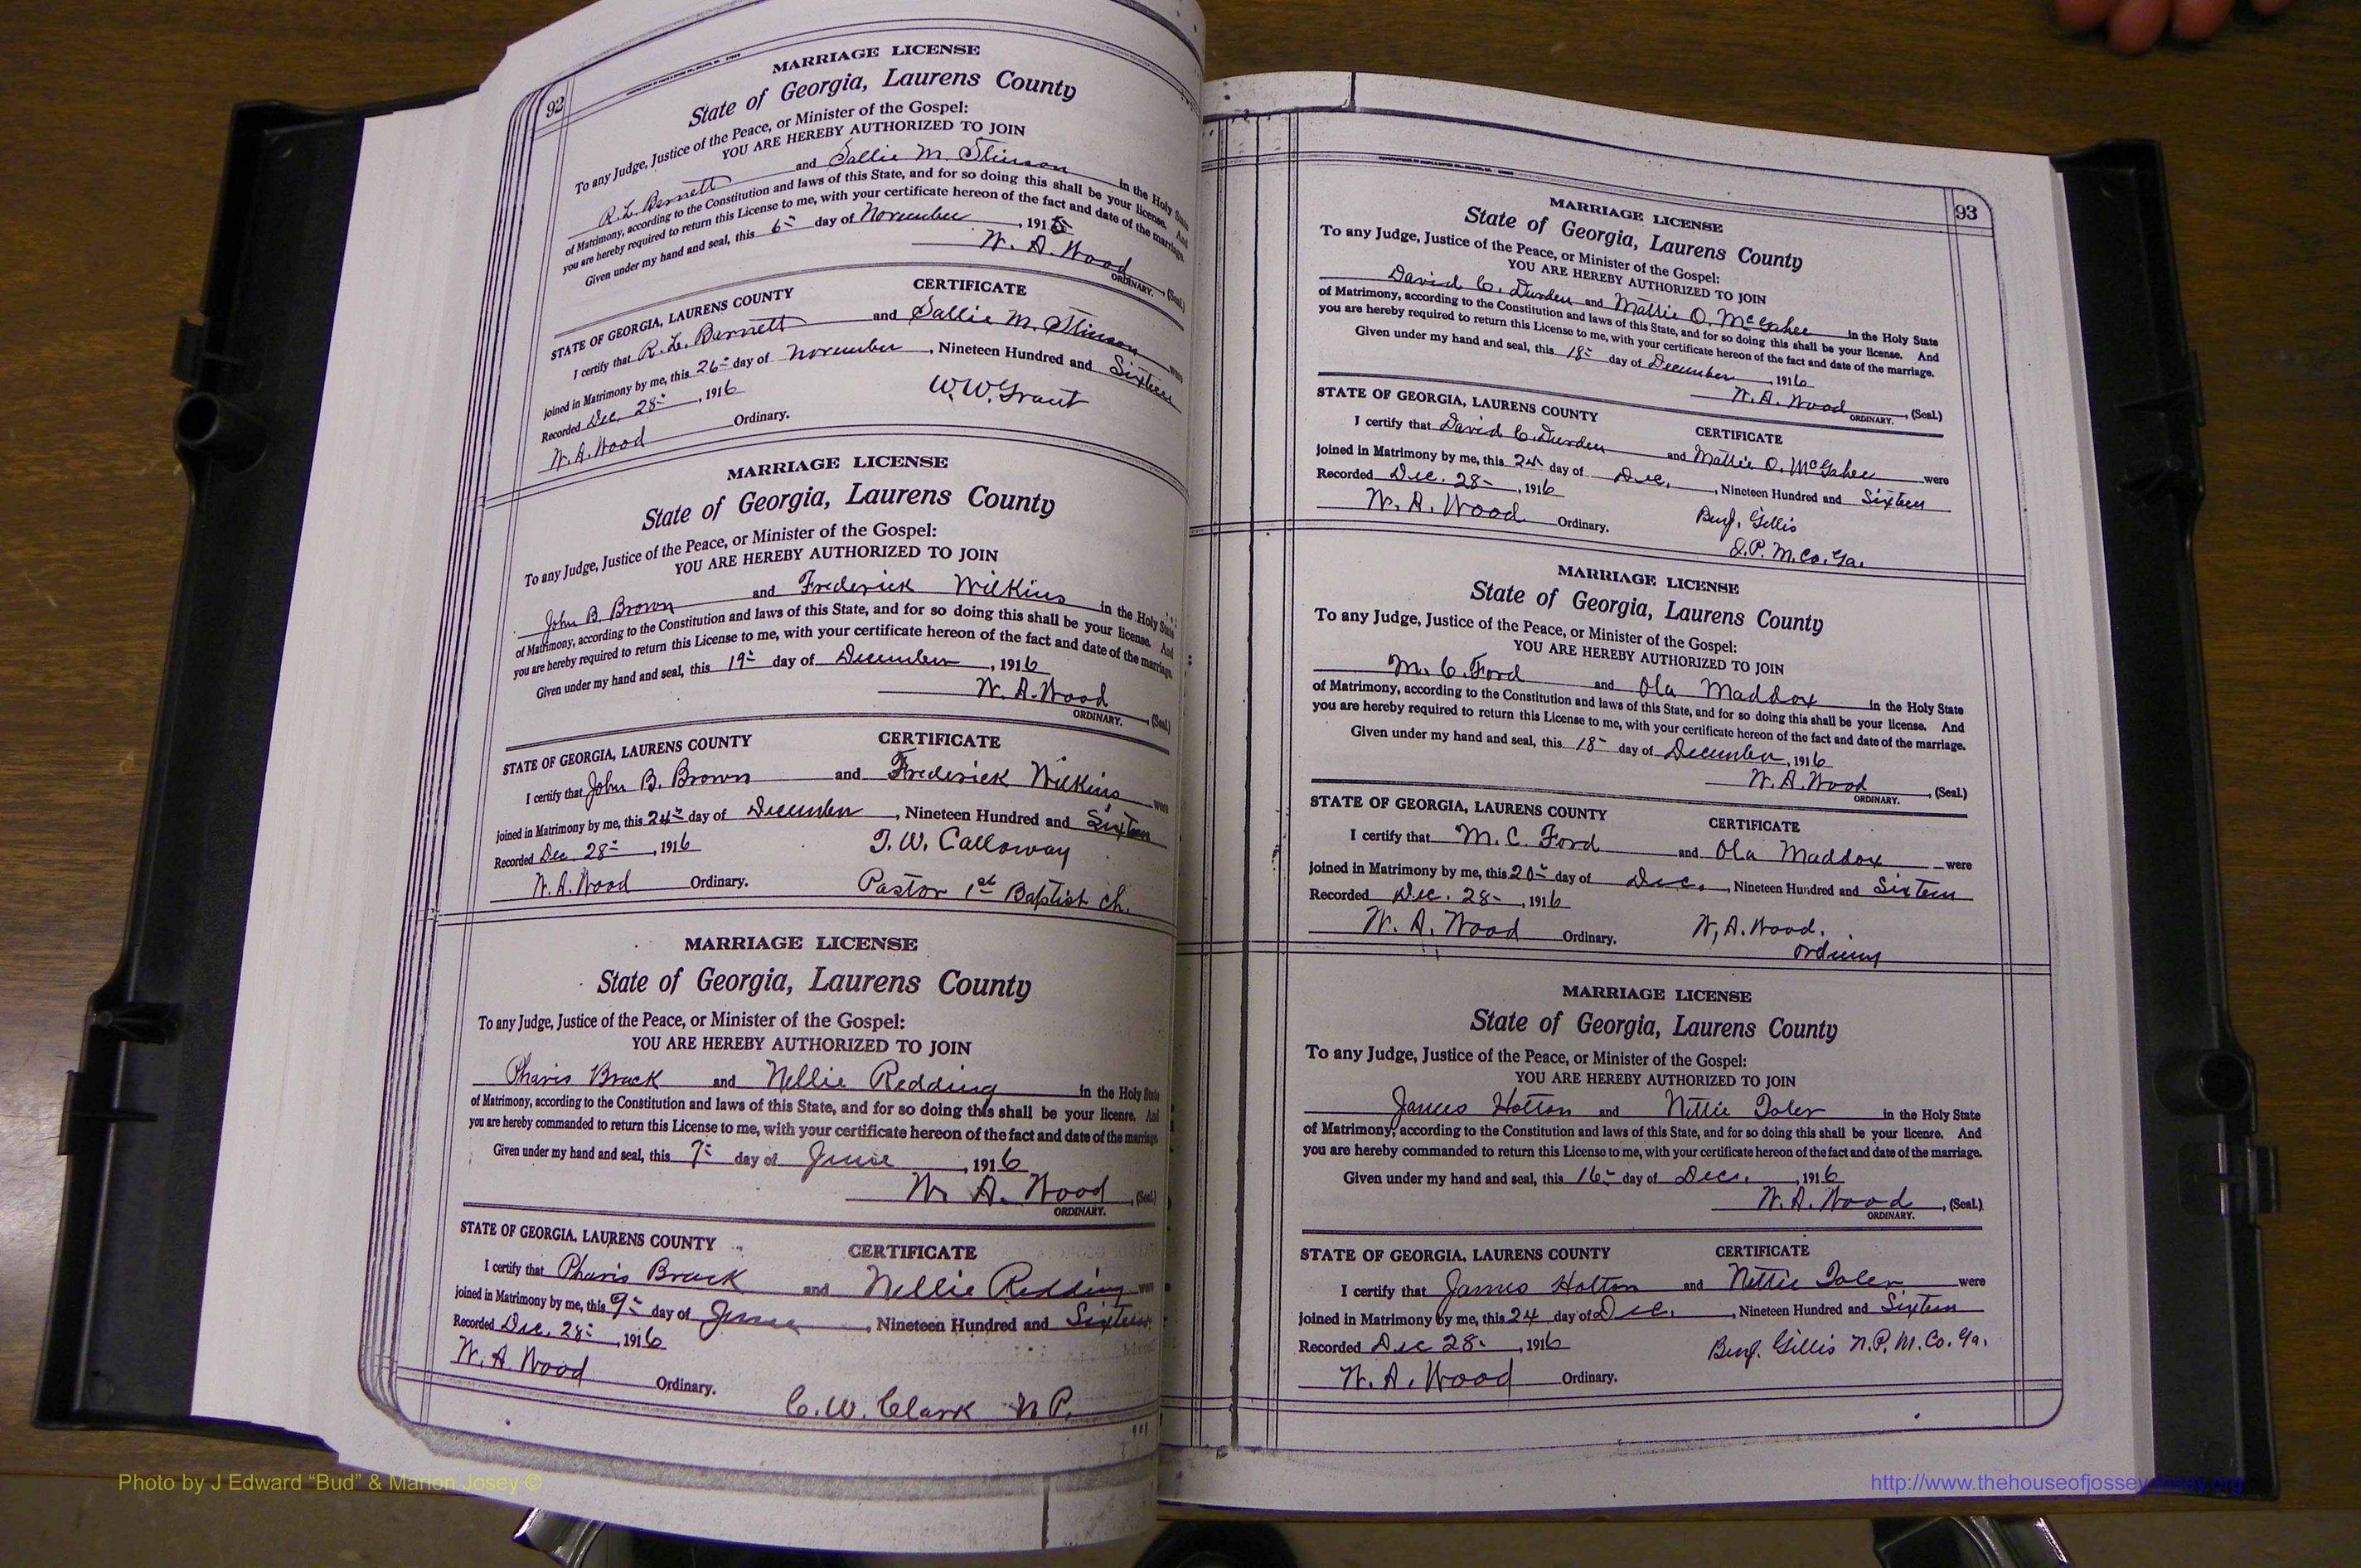 92
MARRIAGE LICENSE
State of Georgia, Laurens County
To any Judge, Justice of the Peace, or Minister of the Gospel:
YOU ARE HEREBY AUTHORIZED TO JOIN
R. L. Barnett and Sallie M. Stinson in the Holy State
of Matrimony, according to the Constitution and laws of this State, and for so doing this shall be your license. And
you are hereby required to return this License to me, with your certificate hereon of the fact and date of the marriage.
Given under my hand and seal, this 6 day of November, 191
W. A. Wood, (Seal.)
ORDINARY.
STATE OF GEORGIA, LAURENS COUNTY CERTIFICATE
I certify that R. L. Barnett and Sallie M. Stinson were
joined in Matrimony by me, this 26 day of November, Nineteen Hundred and Sixteen
Recorded Dec. 28, 1916 W. W. Grant
W. A. Wood Ordinary.
MARRIAGE LICENSE
State of Georgia, Laurens County
To any Judge, Justice of the Peace, or Minister of the Gospel:
YOU ARE HEREBY AUTHORIZED TO JOIN
John B. Brown and Frederick Wilkins in the Holy State
of Matrimony, according to the Constitution and laws of this State, and for so doing this shall be your license. And
you are hereby required to return this License to me, with your certificate hereon of the fact and date of the marriage.
Given under my hand and seal, this 19 day of December, 1916
W. A. Wood, (Seal.)
ORDINARY.
STATE OF GEORGIA, LAURENS COUNTY CERTIFICATE
I certify that John B. Brown and Frederick Wilkins were
joined in Matrimony by me, this 24 day of December, Nineteen Hundred and Sixteen
Recorded Dec 28, 1916 T. W. Calloway
W. A. Wood Ordinary. Pastor 1st Baptist Ch.
MARRIAGE LICENSE
State of Georgia, Laurens County
To any Judge, Justice of the Peace, or Minister of the Gospel:
YOU ARE HEREBY AUTHORIZED TO JOIN
Pharis Brack and Nellie Redding in the Holy State
of Matrimony, according to the Constitution and laws of this State, and for so doing this shall be your license. And
you are hereby commanded to return this License to me, with your certificate hereon of the fact and date of the marriage.
Given under my hand and seal, this day of June, 1916
W. A. Wood, (Seal)
ORDINARY.
STATE OF GEORGIA, LAURENS COUNTY CERTIFICATE
I certify that Pharis Brack and Nellie Redding were
joined in Matrimony by me, this 9 day of June, Nineteen Hundred and Sixteen
Recorded Dec. 28, 1916
W. A. Wood Ordinary.
C. W. Clark N P.
93
MARRIAGE LICENSE
State of Georgia, Laurens County
To any Judge, Justice of the Peace, or Minister of the Gospel:
YOU ARE HEREBY AUTHORIZED TO JOIN
David C. Durden and Mattie O. McGahee in the Holy State
of Matrimony, according to the Constitution and laws of this State, and for so doing this shall be your license. And
you are hereby required to return this License to me, with your certificate hereon of the fact and date of the marriage.
Given under my hand and seal, this 18 day of December, 1916
W. A. Wood, (Seal.)
ORDINARY.
STATE OF GEORGIA, LAURENS COUNTY CERTIFICATE
I certify that David C. Durden and Mattie O. McGahee were
joined in Matrimony by me, this 24 day of Dec., Nineteen Hundred and Sixteen
Recorded Dec. 28, 1916 Benj. Gillis
W. A. Wood Ordinary. P. M. Co. Ga.
MARRIAGE LICENSE
State of Georgia, Laurens County
To any Judge, Justice of the Peace, or Minister of the Gospel:
YOU ARE HEREBY AUTHORIZED TO JOIN
M. C. Ford and Ola Maddox in the Holy State
of Matrimony, according to the Constitution and laws of this State, and for so doing this shall be your license. And
you are hereby required to return this License to me, with your certificate hereon of the fact and date of the marriage.
Given under my hand and seal, this 18 day of December, 1916
W. A. Wood, (Seal.)
ORDINARY.
STATE OF GEORGIA, LAURENS COUNTY CERTIFICATE
I certify that M. C. Ford and Ola Maddox were
joined in Matrimony by me, this 20 day of Dec., Nineteen Hundred and Sixteen
Recorded Dec. 28, 1916
W. A. Wood Ordinary. W, A. Wood.
MARRIAGE LICENSE
State of Georgia, Laurens County
To any Judge, Justice of the Peace, or Minister of the Gospel:
YOU ARE HEREBY AUTHORIZED TO JOIN
James Holton and Nettie Toler in the Holy State
of Matrimony, according to the Constitution and laws of this State, and for so doing this shall be your license. And
you are hereby commanded to return this License to me, with your certificate hereon of the fact and date of the marriage.
Given under my hand and seal, this 16 day of Dec., 1916
W. A. Wood, (Seal.)
ORDINARY.
STATE OF GEORGIA, LAURENS COUNTY CERTIFICATE
I certify that James Holton and Nettie Toler were
joined in Matrimony by me, this 24 day of Dec., Nineteen Hundred and Sixteen
Recorded Dec 28, 1916 Benj. Gillis N. P. M. Co. Ga.
W. A. Wood Ordinary.
Photo by J Edward “Bud” & Marion Josey ©
http://www.thehouseofjossey-josey.org